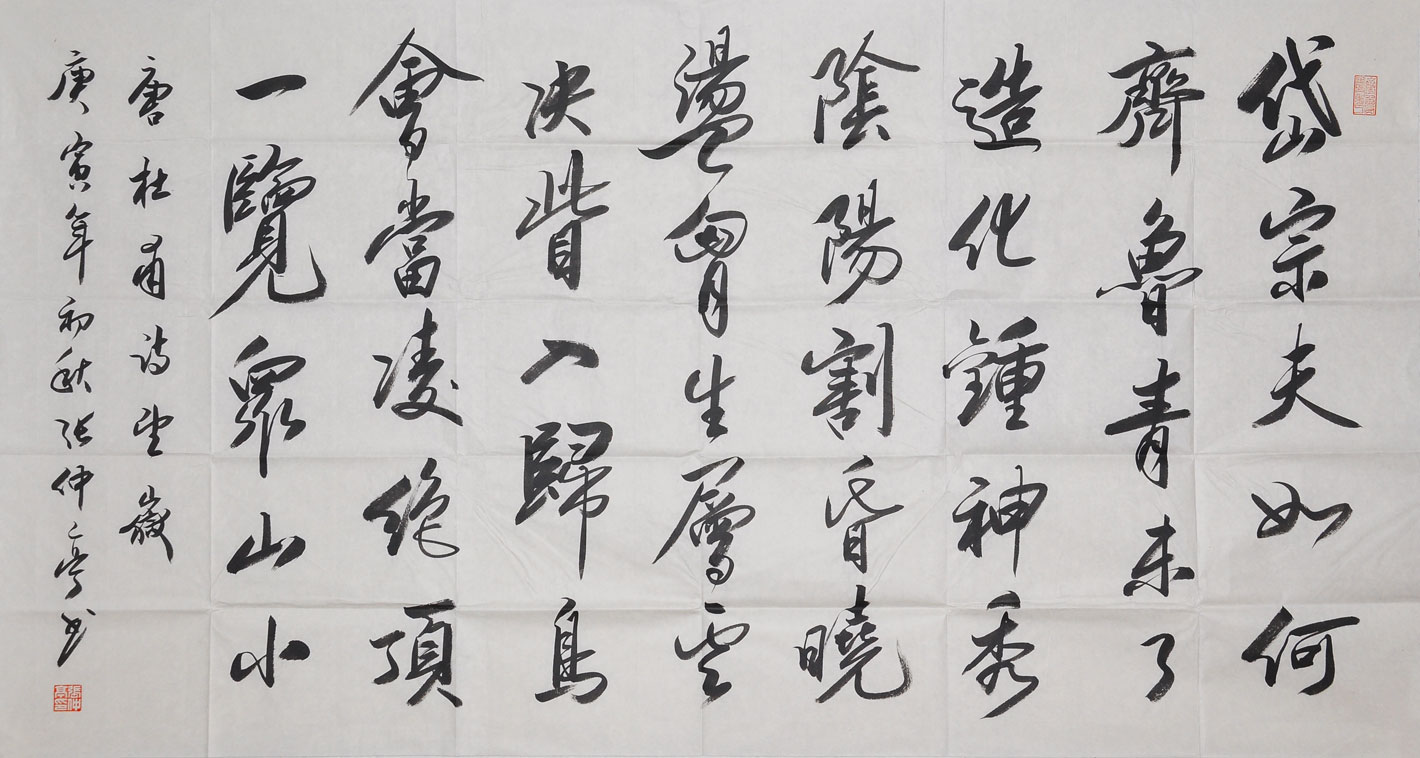 岱宗夫如何
齊魯青未了
造化鍾神秀
陰陽割昏曉
盪胷生層雲
決眥入歸鳥
會當凌絶頂
一覽眾山小
唐杜甫詩望嶽
庚寅年初秋張仲亭書
張仲亭